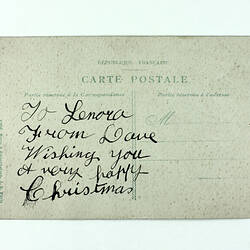 RÉPUBLIQUE FRANÇAISE
CARTE POSTALE
Partie réservée à la Correspondance
Partie réservée à l'adresse
To Lenora
From Dave
Wishing you
A very happy
Christmas